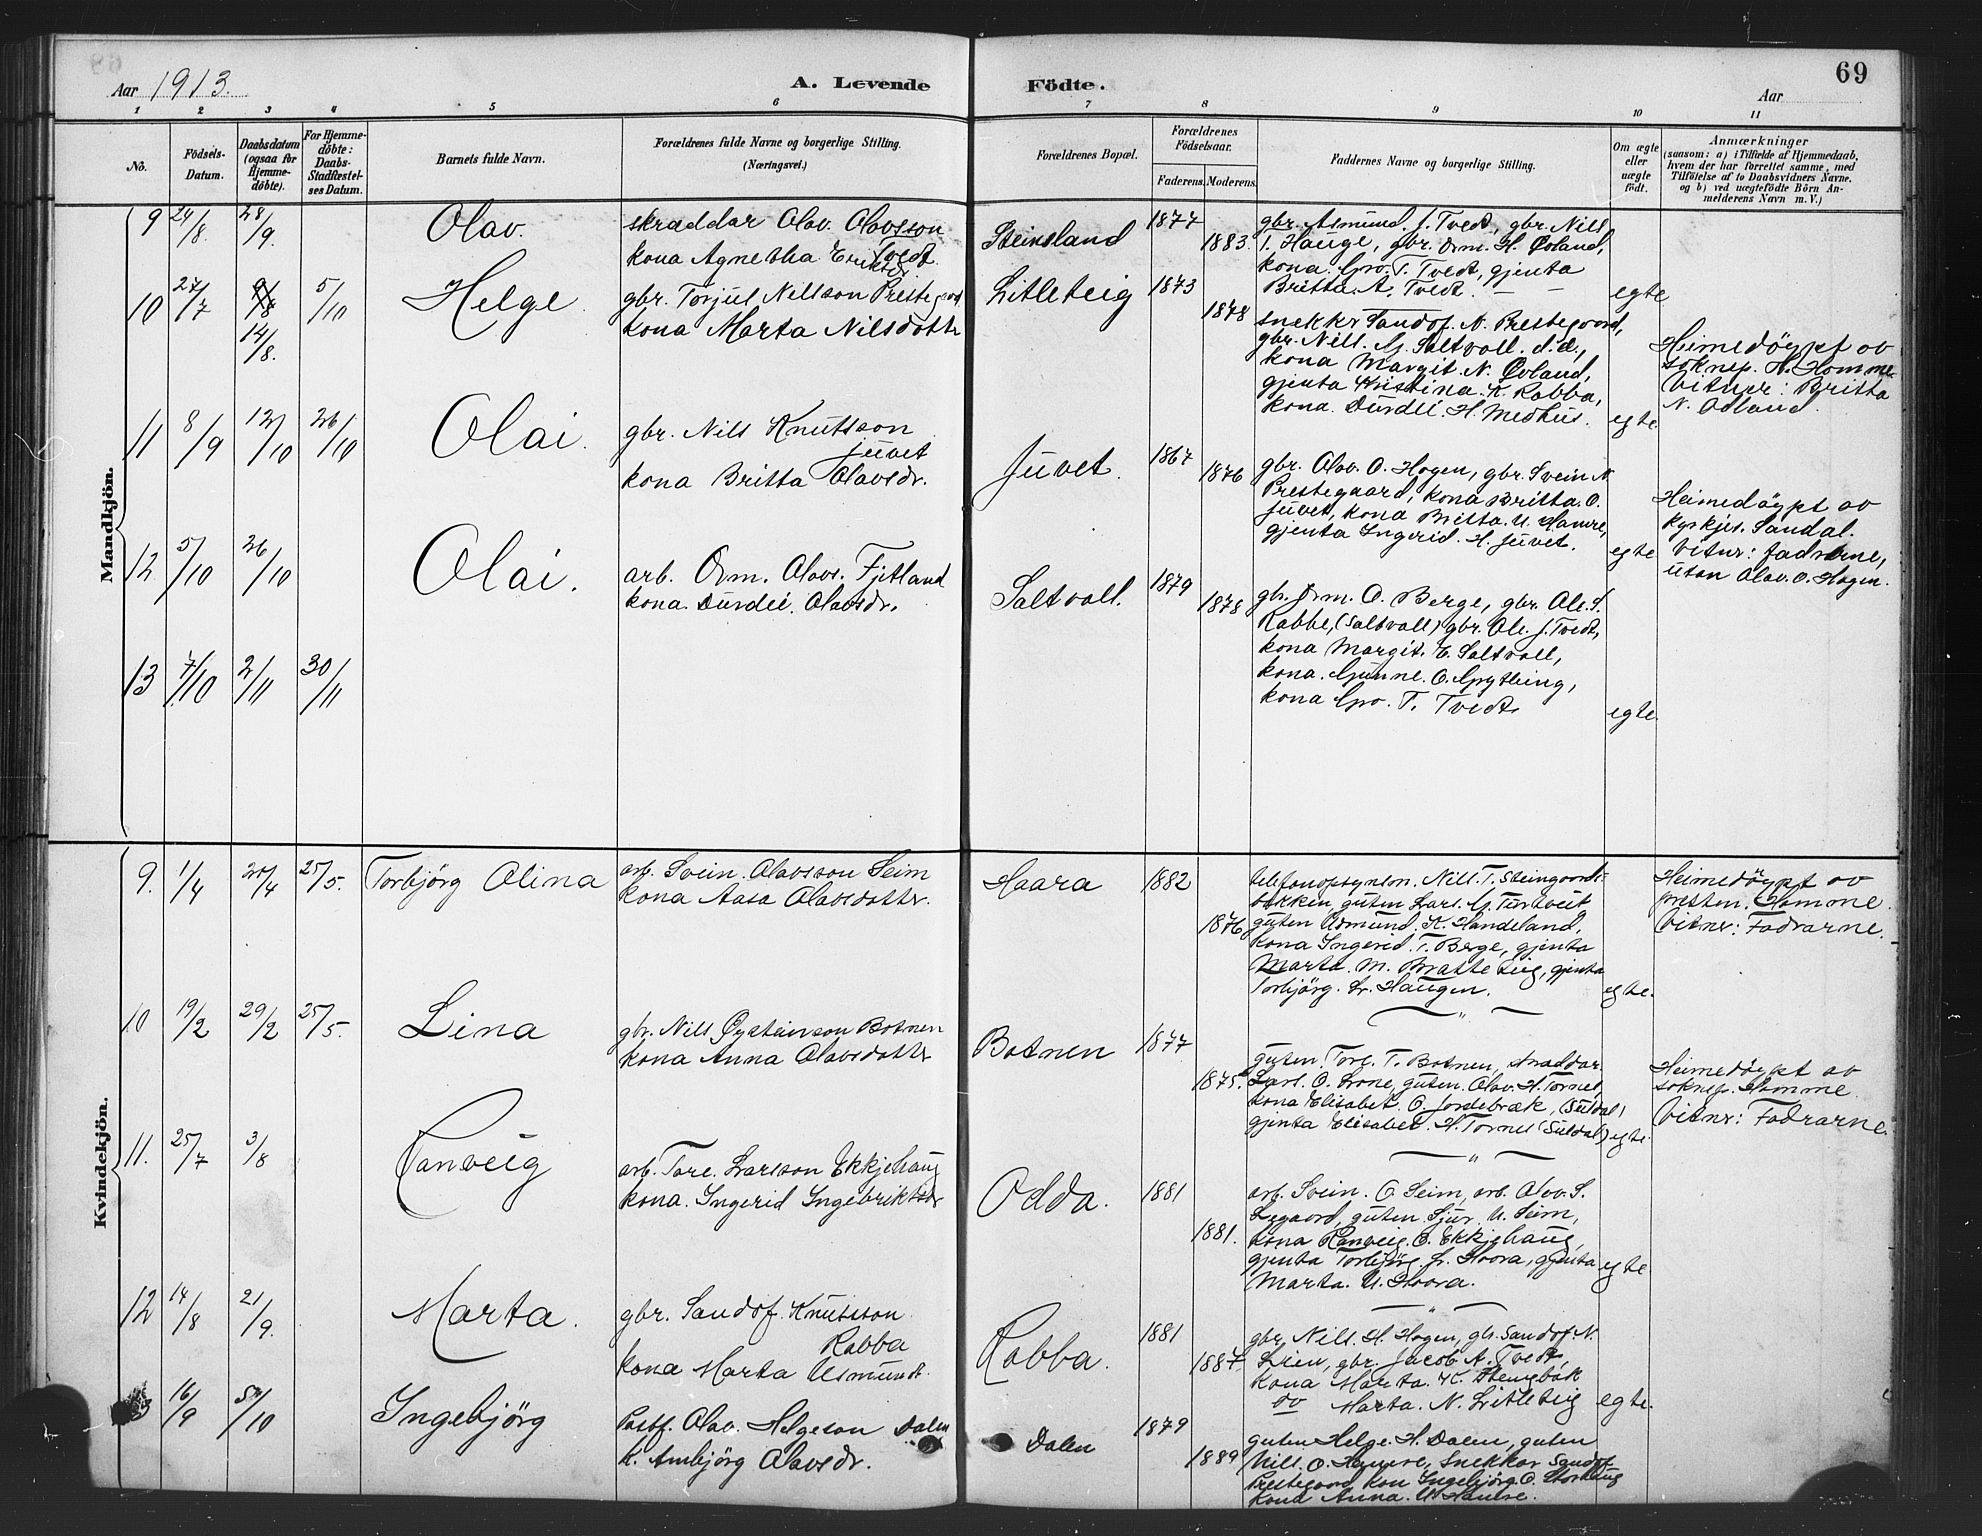 69
Aar 1913.
A. Levende Födte.
Aar
1 2 3 4 5 6 7 8 9 10 11
No.
Födsels-Datum.
Daabsdatum (ogsaa for Hjemme-döbte).
For Hjemme-döbte: Daabs-Stadfæstel-ses Datum.
Barnets fulde Navn.
Forældrenes fulde Navne og borgerlige Stilling. (Næringsvei.)
Forældrenes Bopæl.
Forældrenes Födselsaar.
Faderens. Moderens.
Faddernes Navne og borgerlige Stilling.
Om ægte eller uægte födt.
Anmærkninger
(saasom: a) i Tilfælde af Hjemmedaab,
hvem der har forrettet samme, med
Tilföielse af to Daabsvidners Navne.
og b) ved uægtefödte Börn An-
melderens Navn m. V.)
Mandkjön.
9 24/8. 28/9. Olav.
skræddar Olav Olavsson
Tvedt
kona Agnetha Eriksdr
Steinsland 1877 1883.
gbr. Asmund. J. Tvedt, gbr. Nils
T. Hauge, gbr. Orm. H. Øvland,
kona. Gro. T. Tvedt, gjenta
Britta. A. Tvedt.
egte
10 27/7 9/8 14/8. 5/10 Helge
gbr. Torjul Nilsson Prestegaard
kona Marta Nilsdotter
Litleteig 1873 1878
snekkr Sandof. N. Prestegaard,
gbr. Nils. G. Saltvoll. d.æ.,
kona Margit. N. Øvland,
gjenta Kristina. K. Rabba,
kona. Durdei. H. Medhus.
egte.
Heimedöypt av
soknep. H. Homme
Vitner: Britta
N. Øvland.
11 8/9 12/10 26/10 Olai.
gbr. Nils Knutsson
Juvet
kona Britta Olavsdr.
Juvet. 1867 1876
gbr. Olav. O. Hagen, gbr. Svein N.
Prestegaard, kona Britta. O.
Juvet, kona Britta. U. Hamre,
gjenta Ingerid. H. Juvet.
egte
Heimedöypt av
kyrkjes. Sandal.
Vitnr: fadrarne,
utan Olav. O. Hagen.
12 5/10 26/10 Olai.
arb. Orm. Olavs. Fjetland
kona. Durdei. Olavsdr.
Saltvoll. 1879 1878
gbr. Orm. O. Berge, gbr. Ole. S.
Rabbe, (Saltvall) gbr. Ole. J. Tvedt,
kona Margit. E. Saltvoll,
kona. Gunne. O. Grytleing,
kona Gro. T. Tvedt.
egte.
13 7/10 2/11 30/11
Kvindekjön.
9. 1/4 20/4 25/5. Torbjörg Olina
arb. Svein. Olavsson Seim
kona Aasa Olavsdotter.
Haara 1882 1876
telefonopsynsm. Nils. T. Steingards-
bakken, guten Lars. G. Turtveit
guten Asmund. K. Handeland,
kona Ingerid. T. Berge, gjenta
Marta. M. Bratteteig, gjenta
Torbjörg. Hr. Haugen.
egte.
Heimedöypt av
presten. Homme.
Vitnr: Fadrarne.
10 19/2 29/2 25/5. Lina
gbr. Nils Øysteinson Botnen
kona Anna Olavsdotter
Botnen 1877 1875.
guten. Tore. T. Botnen, skraddar.
Lars. O. Lone, guten. Olav. H. Tornes,
kona Elisabet. O. Jordebræk, (Suldal)
gjenta Elisabet. H. Tornes (Suldal)
egte.
Heimedöypt av
soknep. Homme.
Vitnr: Fadrarne.
11. 25/7 3/8 Ranveig
arb. Tore. Larsson Ekkjehaug
kona. Ingerid Ingebriktsdr
Odda. 1881 1881.
arb. Svein. O. Seim, arb. Olav. S.
Legaard, guten. Sjur. U. Seim,
kona Ranveig. O. Ekkjehaug,
gjenta Torbjörg. J. Hoora, gjenta
Marta. U. Hoora.
egte
12 14/8 21/9. Marta.
gbr. Sandof Knutsson
Rabba
kona Marta Usmundr.
Rabba. 1881 1887
gbr. Nils. H. Hagen, gbr. Sandof N.
Lien, gbr. Jacob A. Tvedt
kona Marta. K. Stengbak
do Marta. N. Litleteig
egte.
16/9 5/10 Ingebjörg
Postf. Olav. Helgeson Dalen
k. Ambjörg Olavsdr.
Dalen 1879 1889
guten Helge. H. Dalen, guten
Nils. O. Hamre, Snekkar Sandof
Prestegaard kon Ingebjörg O. Storhaug
Kona Anna. U. Hamre.